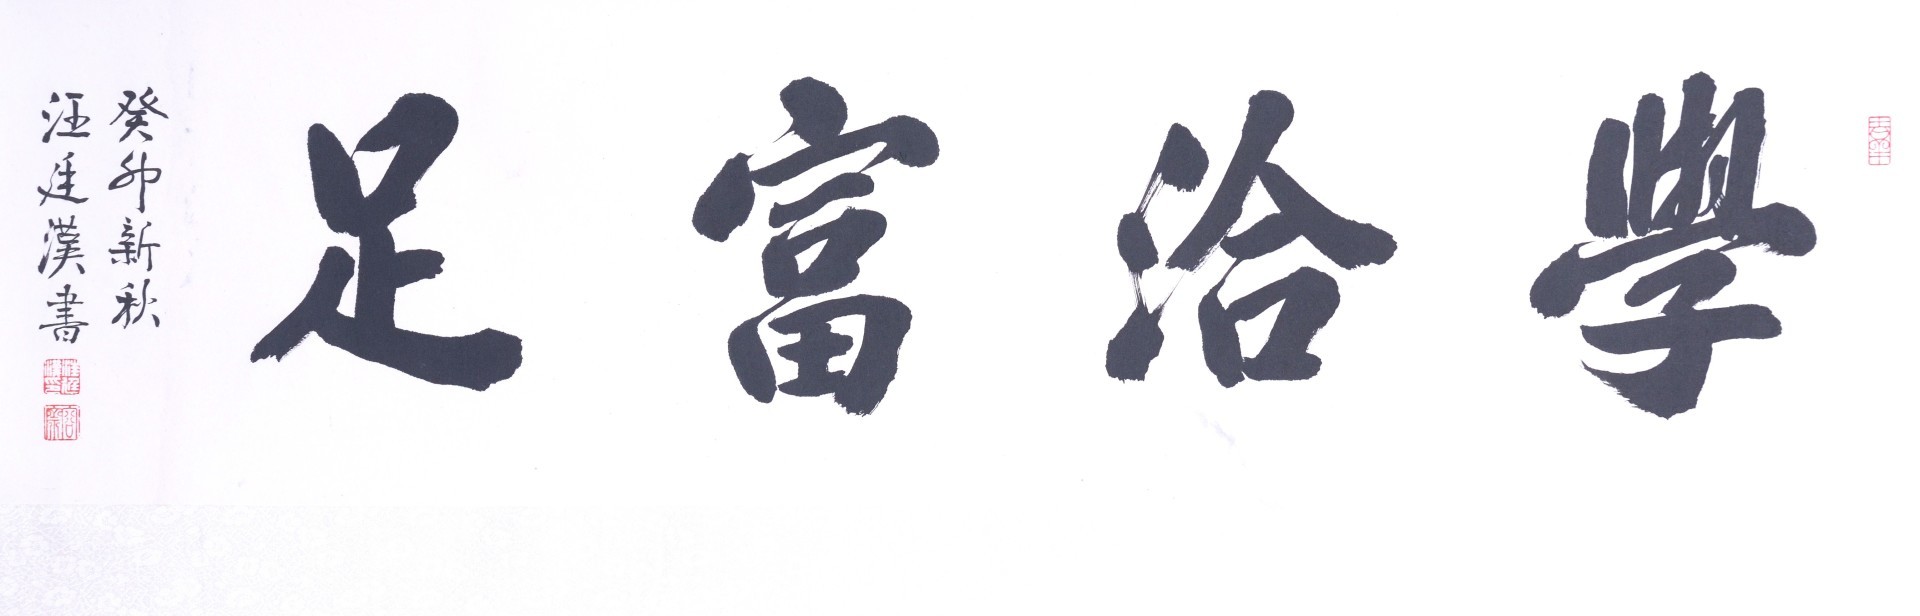 學洽富足
癸卯新秋
汪廷漢書